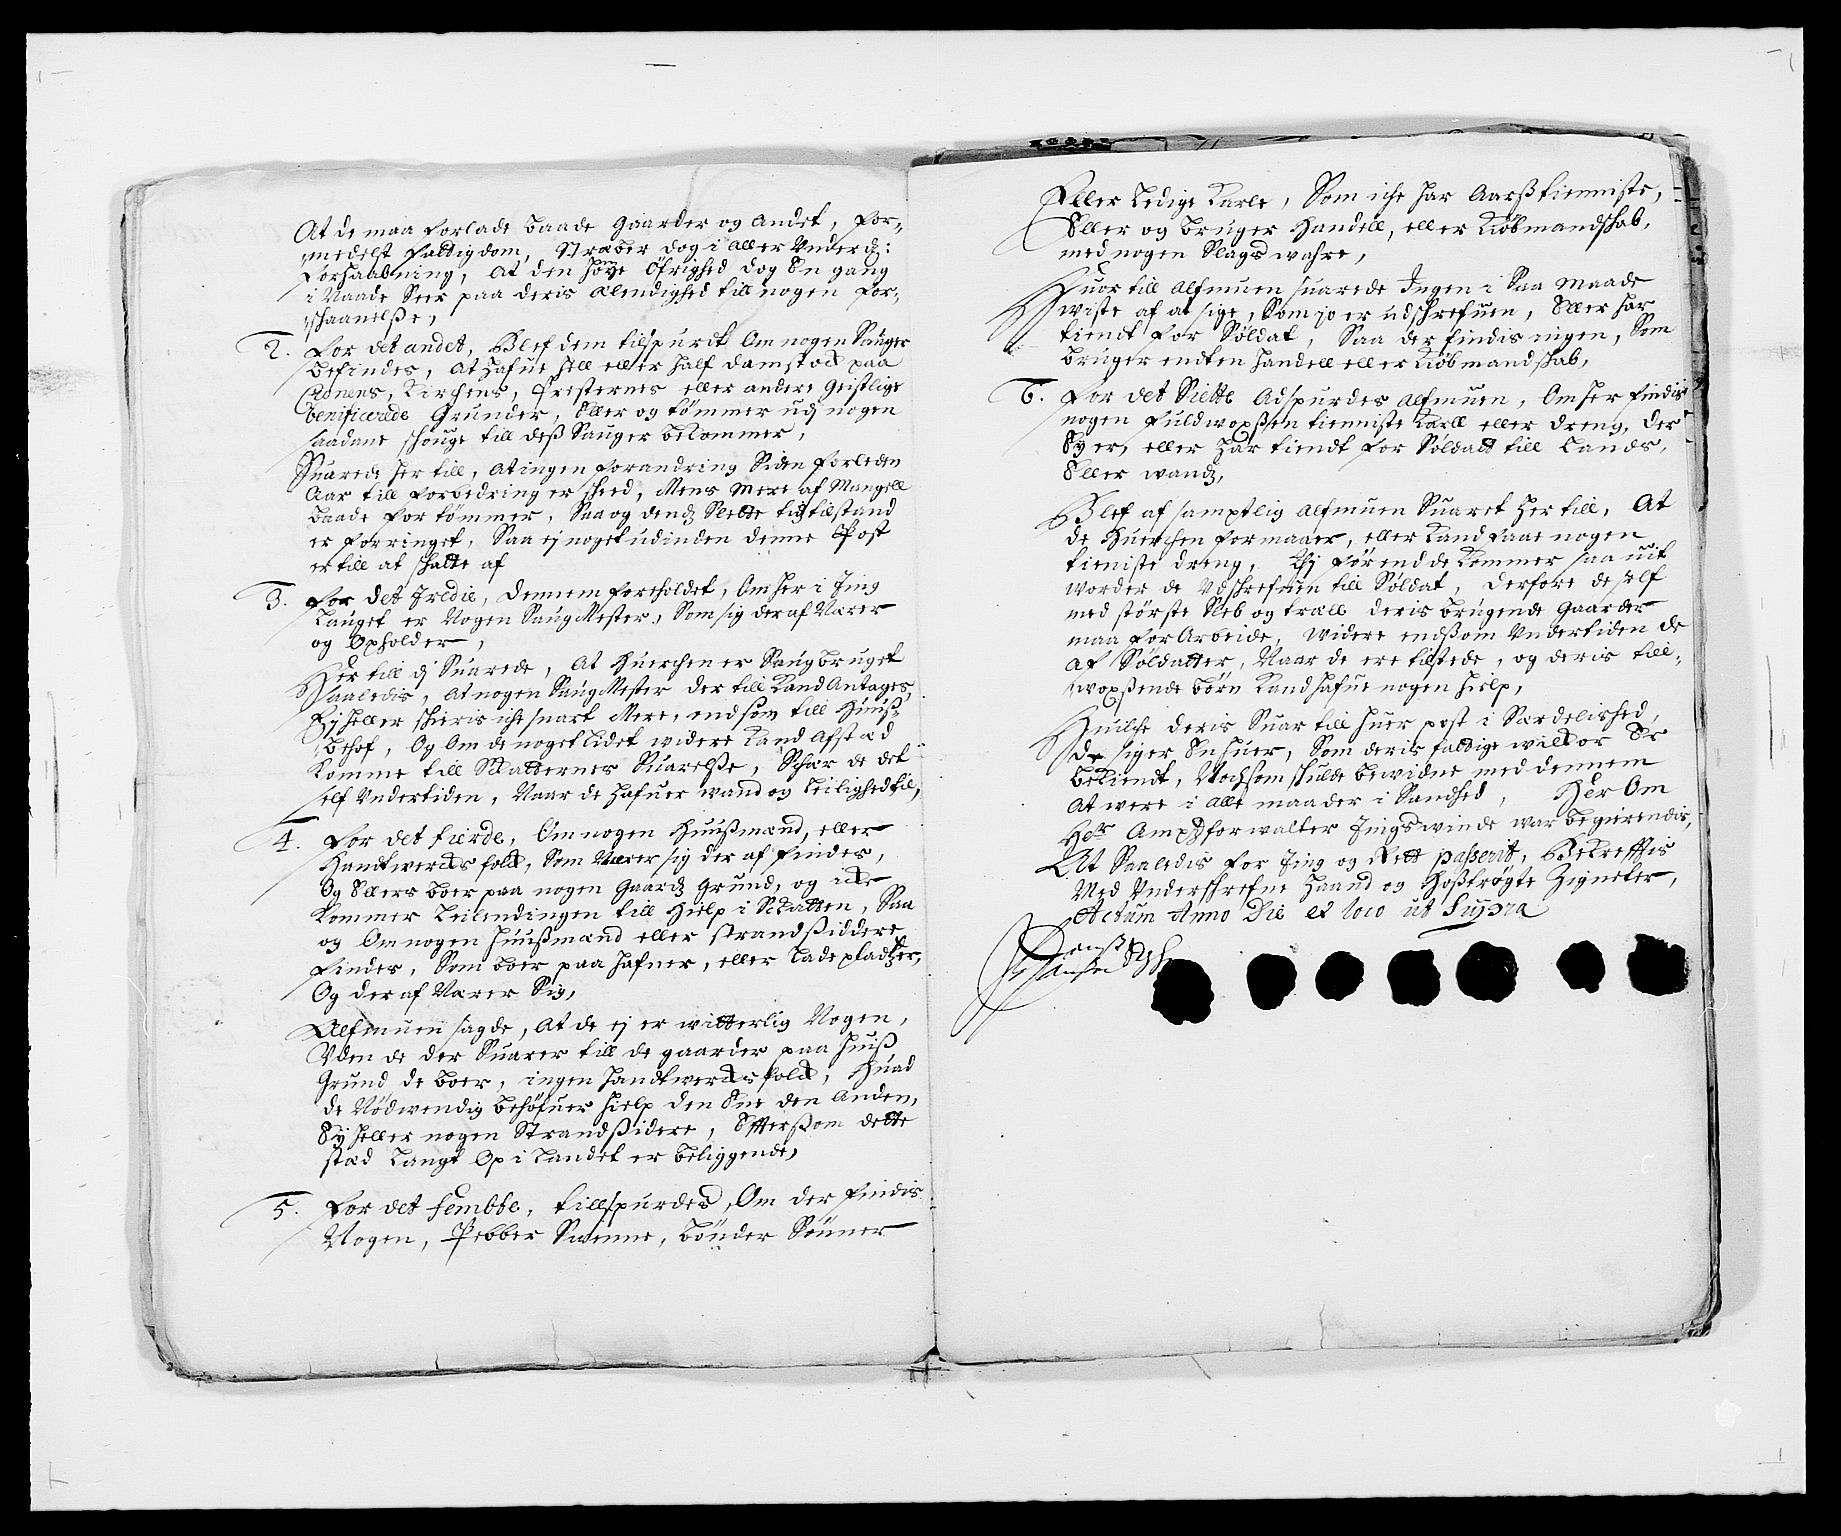 At de maa forlade baade gaarder og andet, for-
medelst fattigdom, stræber dog i aller underd:
forhaabning, at den høye Øfrighed dog En gang
i Naade Seer paa deris Elendighed till nogen for-
schaanelße,
2. For det andet, Blef dem tilspurdt Om nogen Sauger
befindes, at hafue hell eller half damstock paa
Cronens, Kirchens, Presternes eller andre Geistlige
benificerede Grunder, Eller og tømmer udj nogen
saadane schouge till deß Sauger bekommer,
Suarede her till, at ingen forandring Siden forleden
Aar till forbedring er scheed, Mens Mere af Mangell
baade for tømmer, Saa og dend Slette tids tilstand
er forringet, Saa ej noget udinden denne Post
er till at schatte af
3. For det Tredie, Dennem foreholdet, Om her i Ting
Lauget er Nogen Saug Mester, Som sig der af Nærer
og Opholder,
Her till di Suarede, At huerchen er Saugbruget
saaledis, at nogen Saug Mester der till Kand Antages,
Ej heller schieris iche snart Mere, end som till Huuß-
behof, Og Om de noget lidet widere Kand Afsted
Komme till Skatternes Suarelße, Schær de det
self undertiden, Naar de hafuer wand og leilighed til,
4. For det fierde, Om nogen Huußmænd, eller
Handtwercks folck, Som Nærer sig der af findes,
Og Ellers boer paa nogen Gaards Grund, og icke
Kommer Leilendingen till Hielp i Skatten, Saa
og Om nogen Huußmænd eller strandsiddere
findes, Som boer paa hafner, eller Ladepladtzer,
Og der af Nærer Sig,
Allmuen sagde, At de ej er witterlig Nogen,
Uden de der Suarer till de gaarder paa huiß
Grund de boer, ingen handtwercksfolck, Huad
de Nødwendig behøfuer hielp den Ene den Anden,
Ey heller nogen Strandsidere, Efterßom dette
sted Langt Op i Landet er beliggende,
5. For det femte, tillspurdes, Om der findis
Nogen, Pebber Suenne, bønder Sønner
Eller Ledige Karle, Som iche har Aarßtienniste,
Eller og bruger Handell, eller Kiøbmandschab,
med nogen Slags wahre,
Huor till Allmuen suarede Ingen i Saa Maade
wiste af at sige, Som jo er udschrefuen, Eller har
tiendt for Soldat, Saa der findis ingen, Som
bruger endten handell eller Kiøbmandschab,
6. For det Siette Adspurdes Allmuen, Om her findis
nogen fuldwoxßen tienniste Karll eller dreng, der
Ey er, eller har tiendt for Soldadt till Lands,
Eller wands,
Blef af samptlig Allmuen Suaret her till, At
de Huerchen formaaer, eller Kand faae nogen
tieniste dreng, thj før end de Kommer saa wit
worder de Udschrefuen till Soldat, derfore de self
med største Sleb og træll deris brugende gaarder
maa for Arbeide, widere end som Undertiden de
Af Soldatter, Naar de ere tilstede, og deris till-
woxßende børn Kand hafue nogen hielp,
Huilche deris Suar till huer post i Særdelished,
de siger En huer, Som deris fattige willkor Er
bekiendt, Noch som skulde bewidne med dennem
At were i alle maader i Sandhed, Her Om
Hr Ampsforwalter Tingswinde war begierendis,
At Saaledis for Ting og Rett passerit, Bekreffis
Med Underschrefne Haand og Hoßtrøgte Zigneter,
Actum Anno Die et loco ut Supra